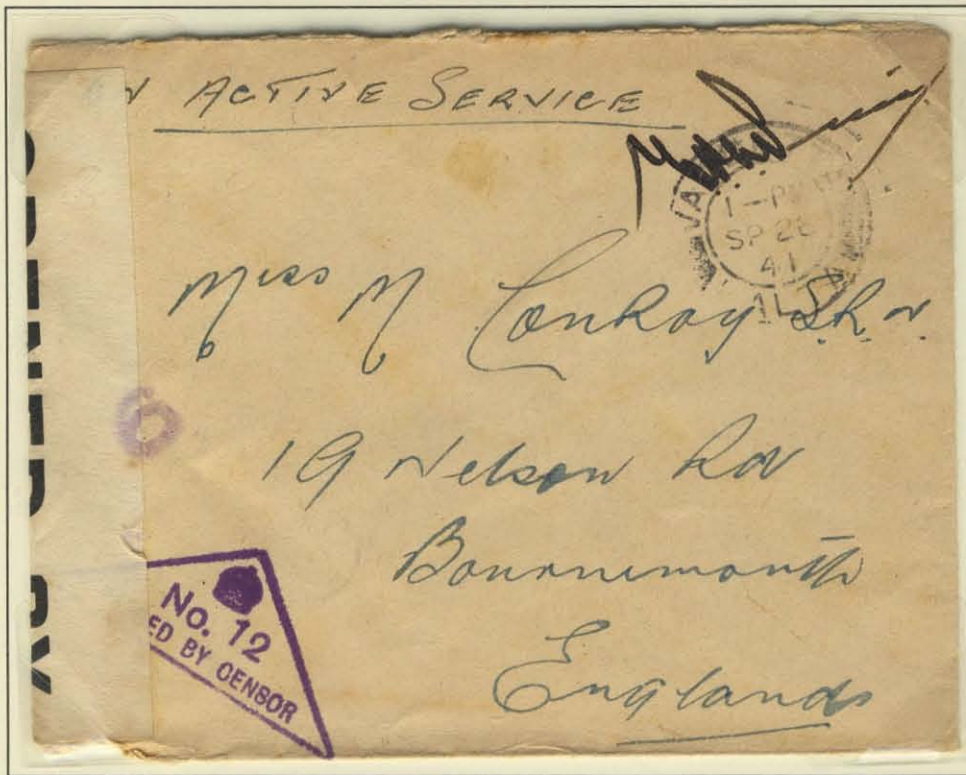 ACTIVE SERVICE
1-PM
SP 2
41
Miss M Conroy S.R.N.
19 Nelson Rd
Bournemouth
England
No. 12
ED BY CENSOR
OPENED BY